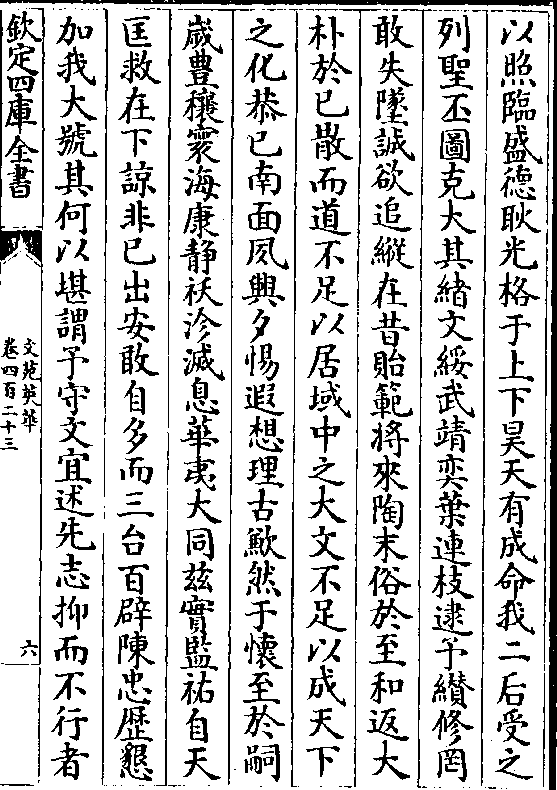 以照臨盛德耿光格于上下昊天有成命我二后受之
列聖丕圖克大其緒文綏武靖奕葉連枝逮予纉修罔
敢失墜誠欲追縱在昔貽範將來陶末俗於至和返大
朴於已散而道不足以居域中之大文不足以成天下
之化恭已南面夙興夕惕遐想理古歉然于懷至於嗣
嵗豊穰寰海康静祅沴滅息華夷大同兹實監祐自天
匡救在下諒非已出安敢自多而三台百辟陳忠歴懇
加我大號其何以堪謂予守文宜述先志抑而不行者
欽定四庫全書
文苑英華
卷四百二十三
六